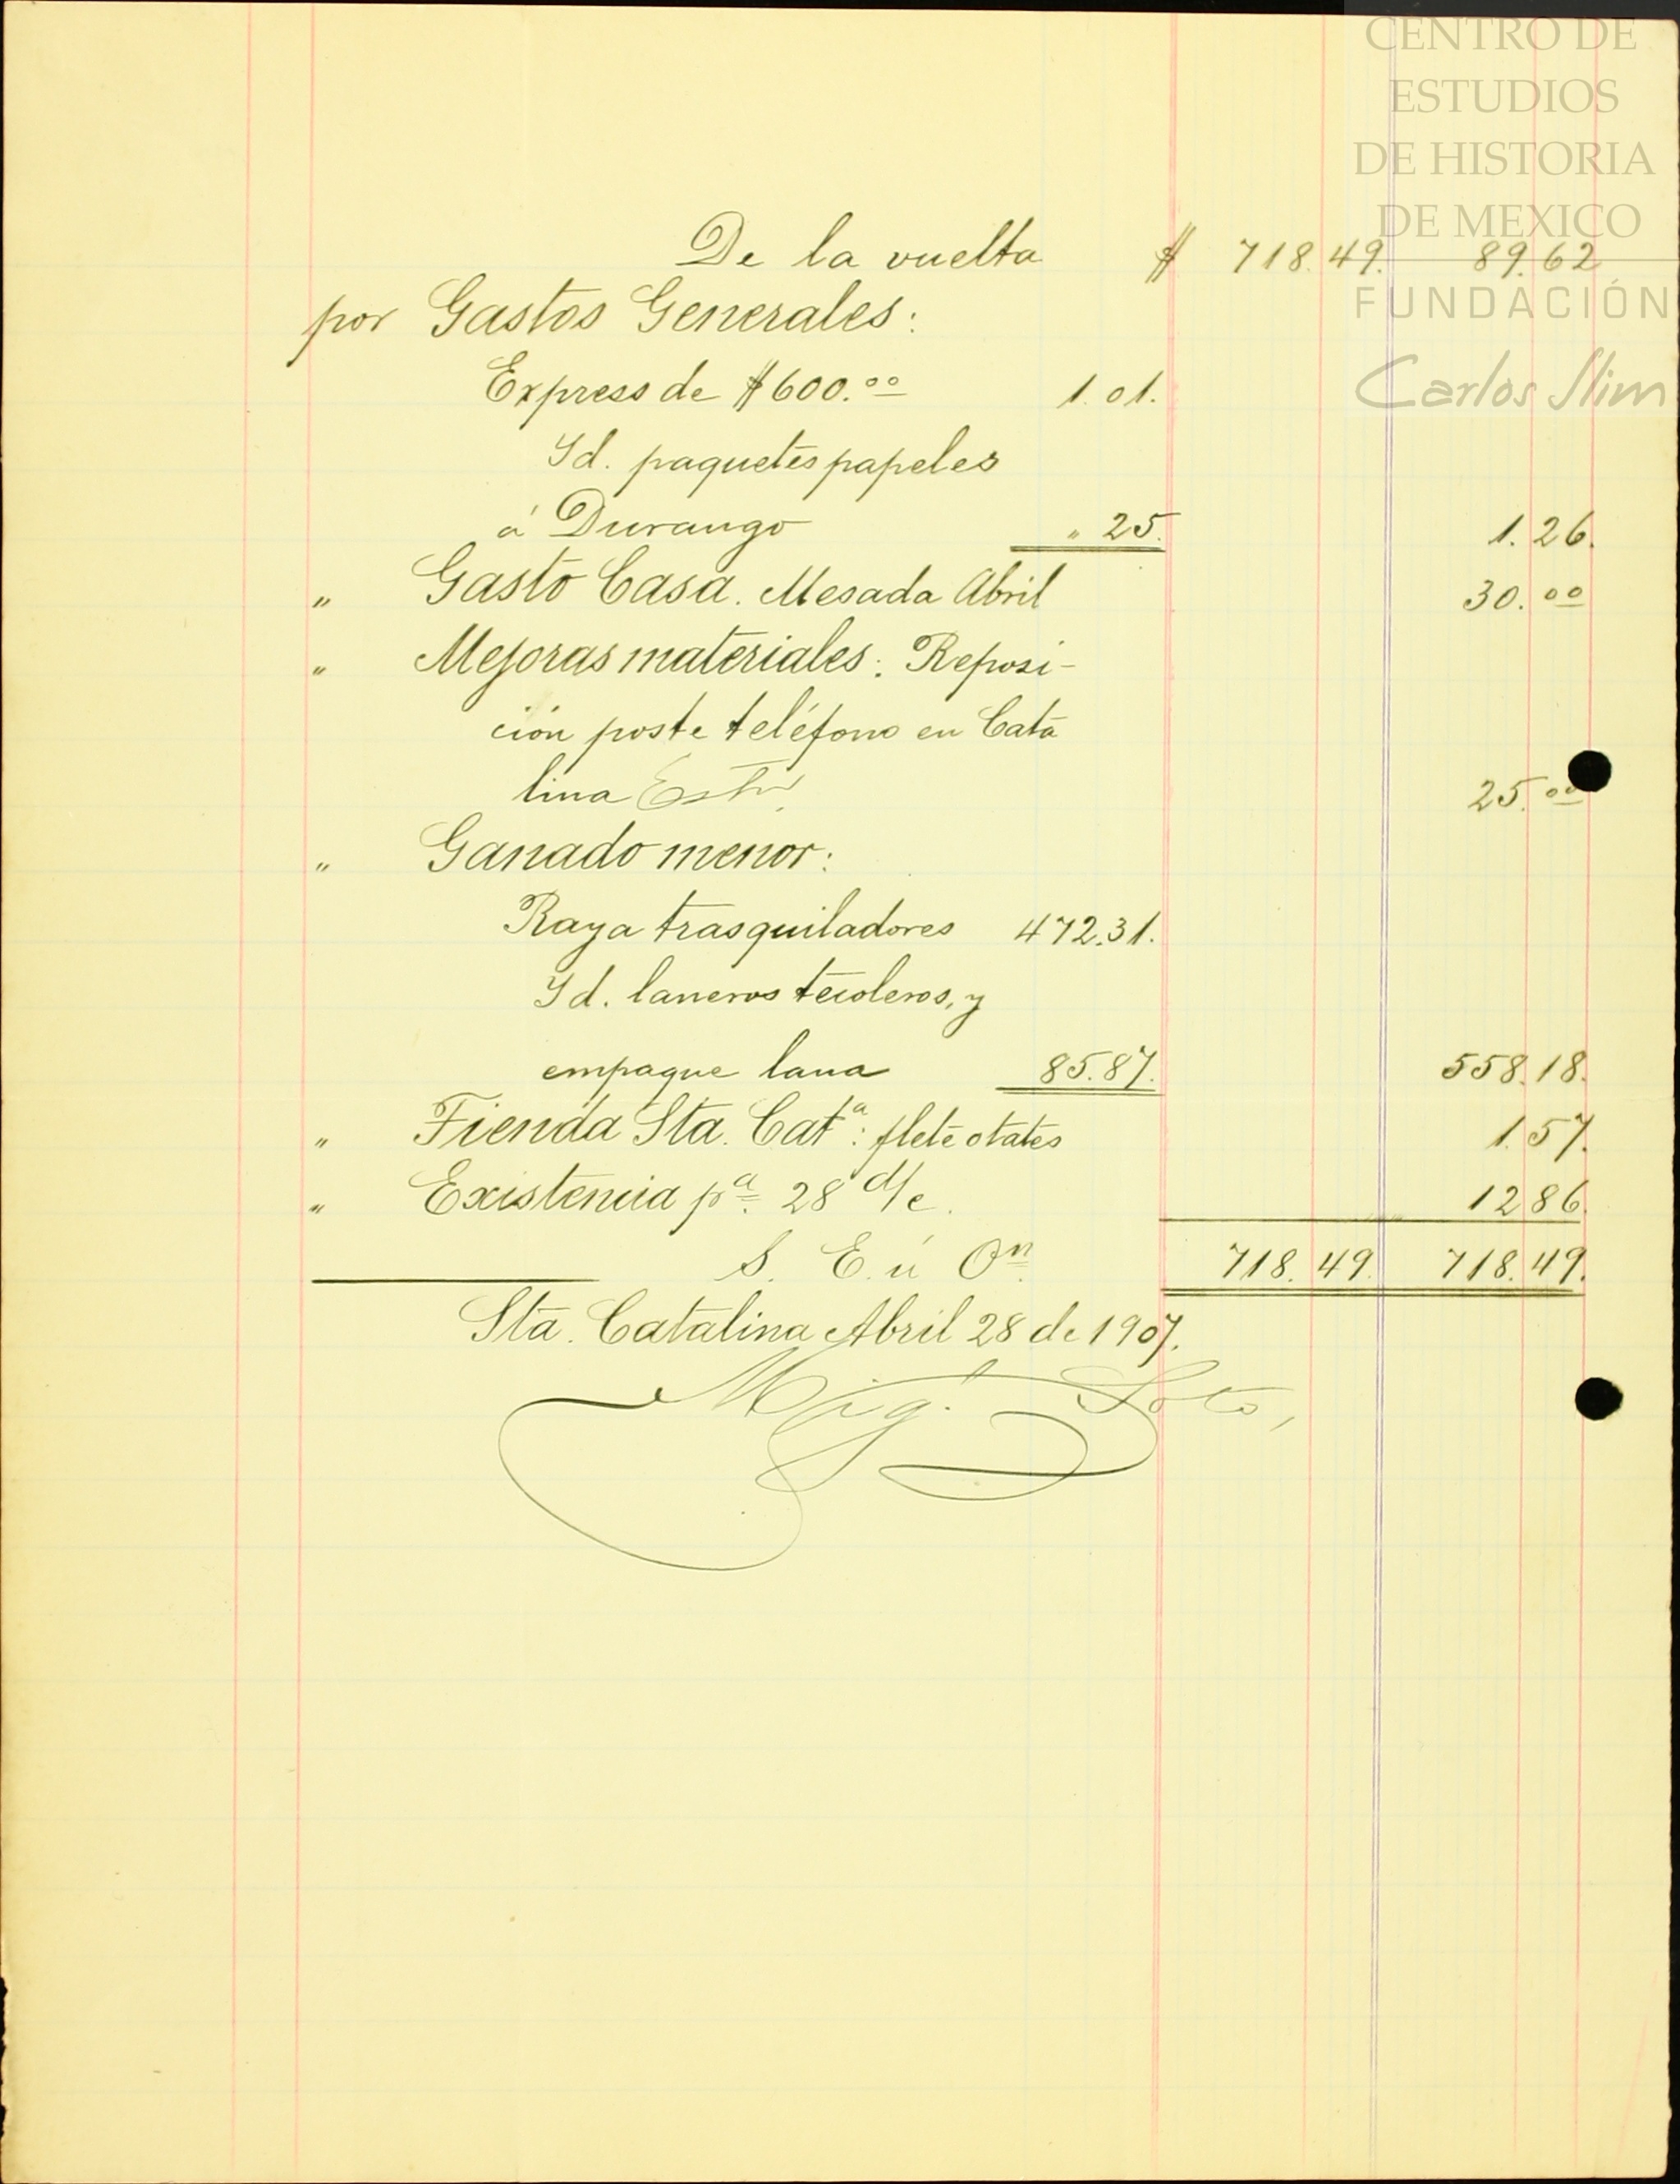 CENTRO DE
ESTUDIOS
DE HISTORIA
DE MEXICO
FUNDACIÓN
Carlos Slim
De la vuelta $ 718.49. 89.62
por Gastos Generales:
Express de $600.00 1.01.
Yd. paquetes papeles
á Durango " 25. 1.26.
" Gasto Casa. Mesada Abril 30.00
" Mejoras materiales: Reposi-
ción poste teléfono en Cata
lina 25.00
" Ganado menor:
Raya trasquiladores 472.31.
Yd. laneros tecoleros, y
empaque lana 85.87. 558.18.
" Tienda Sta. Cata: flete otates 1.57.
" Existencia pa. 28 d/e. 12 86.
S. E. ú On. 718.49. 718.49.
Sta. Catalina Abril 28 de 1907.
Mig. Soto,